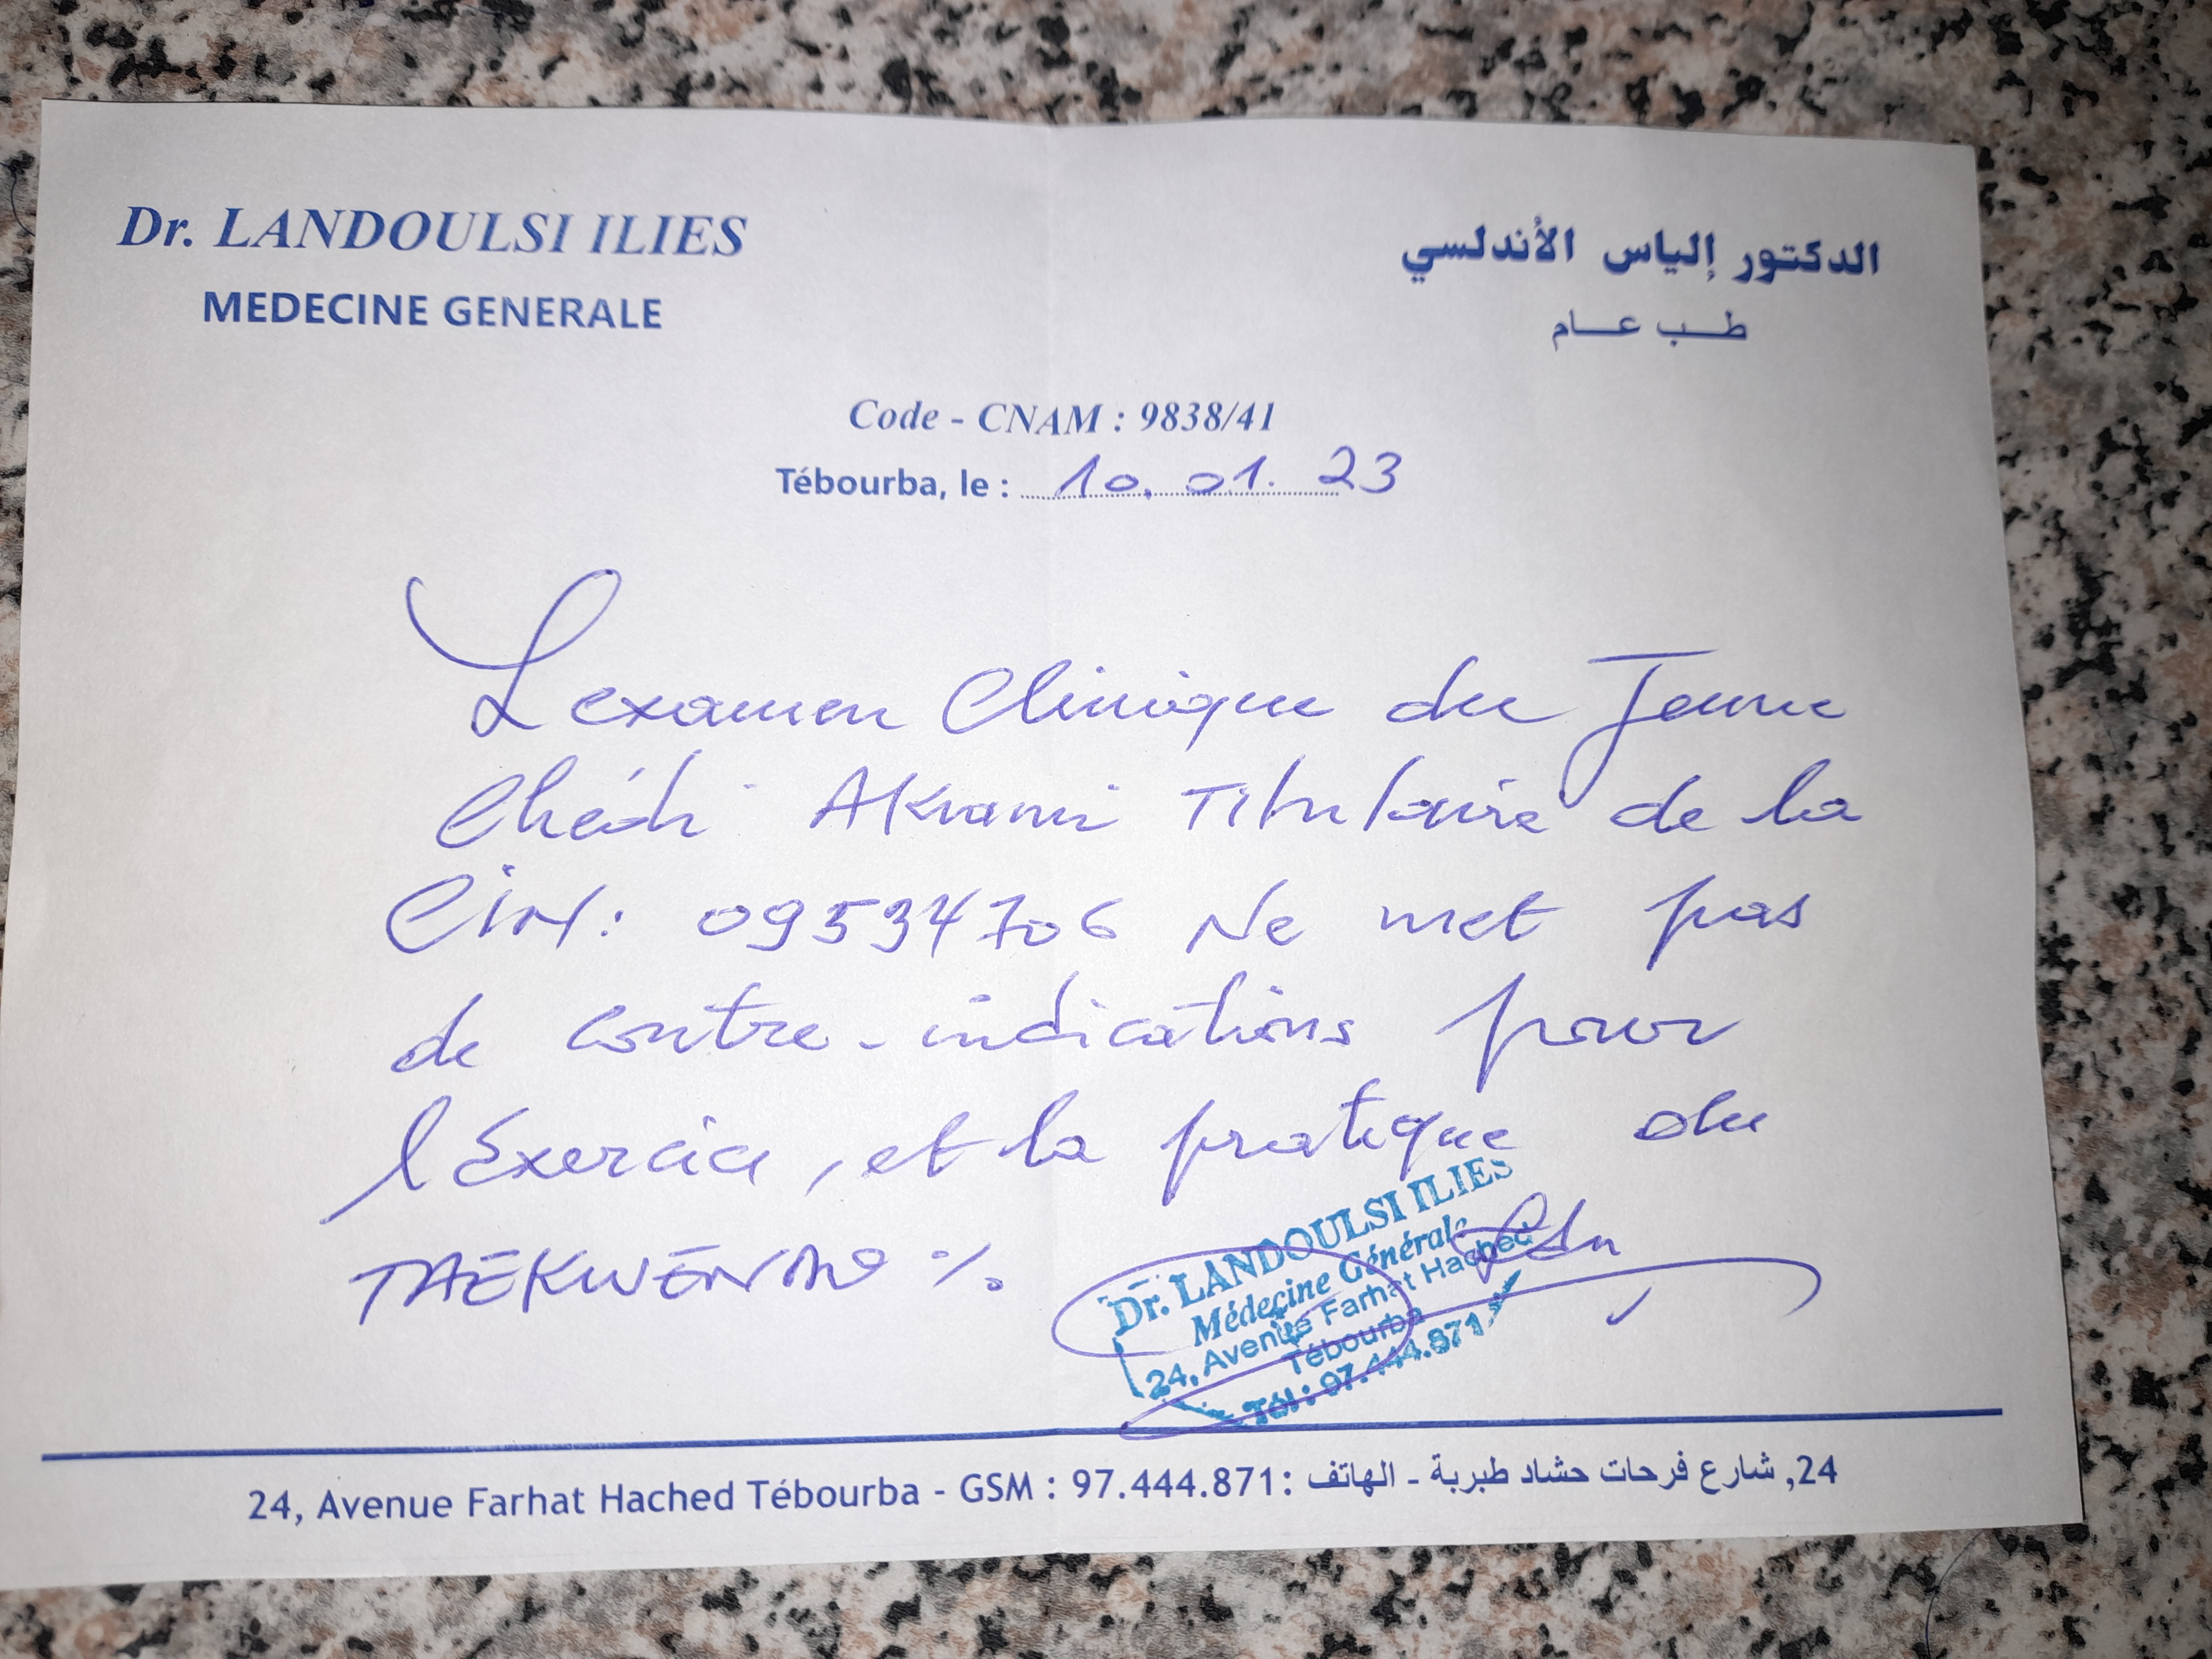 Dr. LANDOULSI ILIES
MEDECINE GENERALE
الدكتور إلياس الأندلسي
طب عام
Code - CNAM : 9838/41
Tébourba, le : 10. 01. 23
L'examen Clinique du Jeune
Chédi Akrami Titulaire de la
CIN: 09534706 Ne met pas
de contre-indications pour
l'Exercice, et la pratique du
TAEKWENDO %.
Dr. LANDOULSI ILIES
Médecine Générale
24, Avenue Farhat Hached
Tébourba
Tél : 97.444.871
24, Avenue Farhat Hached Tébourba - GSM : 97.444.871: 24, شارع فرحات حشاد طبربة - الهاتف